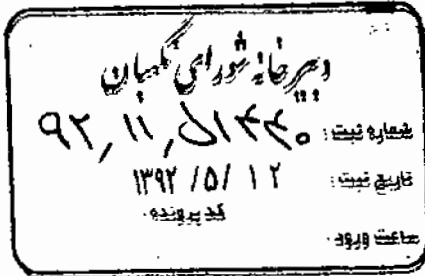 دبیرخانه شورای نگهبان
شماره ثبت: ۹۲/۱۱/۵۱۴۴۰
تاریخ ثبت: ۱۳۹۲/۵/۱۲
کد پرونده:
ساعت ورود: